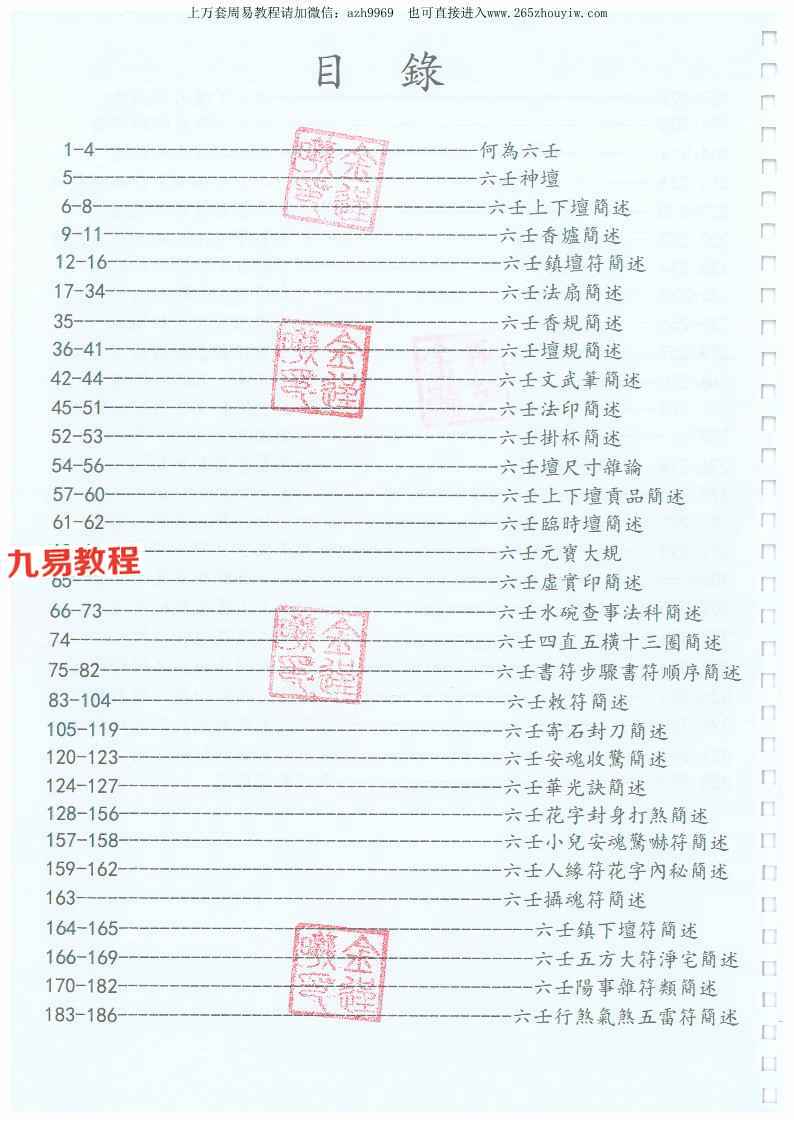 上万套周易教程请加微信：azh9969　也可直接进入www.265zhouyiw.com
目　錄
1-4 何為六壬
5 六壬神壇
6-8 六壬上下壇簡述
9-11 六壬香爐簡述
12-16 六壬鎮壇符簡述
17-34 六壬法扇簡述
35 六壬香規簡述
36-41 六壬壇規簡述
42-44 六壬文武筆簡述
45-51 六壬法印簡述
52-53 六壬掛杯簡述
54-56 六壬壇尺寸雜論
57-60 六壬上下壇貢品簡述
61-62 六壬臨時壇簡述
六壬元寶大規
九易教程
65 六壬虛實印簡述
66-73 六壬水碗查事法科簡述
74 六壬四直五橫十三圈簡述
75-82 六壬書符步驟書符順序簡述
83-104 六壬敕符簡述
105-119 六壬寄石封刀簡述
120-123 六壬安魂收驚簡述
124-127 六壬華光訣簡述
128-156 六壬花字封身打煞簡述
157-158 六壬小兒安魂驚嚇符簡述
159-162 六壬人緣符花字內秘簡述
163 六壬攝魂符簡述
164-165 六壬鎮下壇符簡述
166-169 六壬五方大符淨宅簡述
170-182 六壬陽事雜符類簡述
183-186 六壬行煞氣煞五雷符簡述